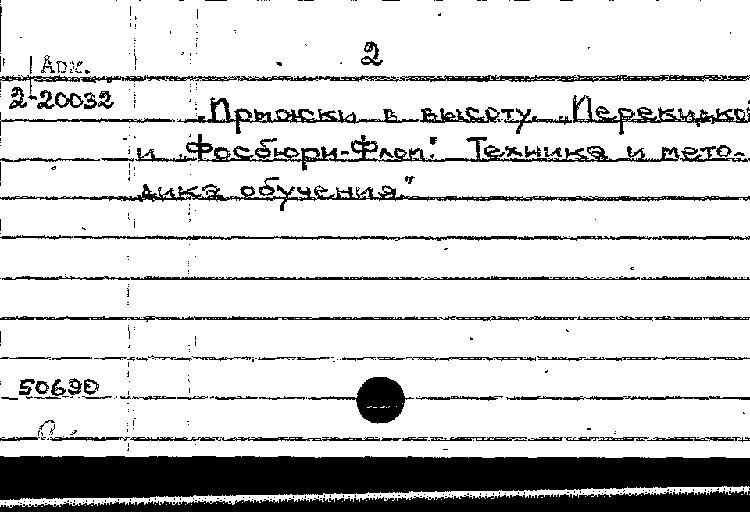 2
Арх.
2-20032
„Прыжски в высоту. „Перекидкой
и „Фосбюри-Флоп". Техника и мето-
дика обучения."
50690